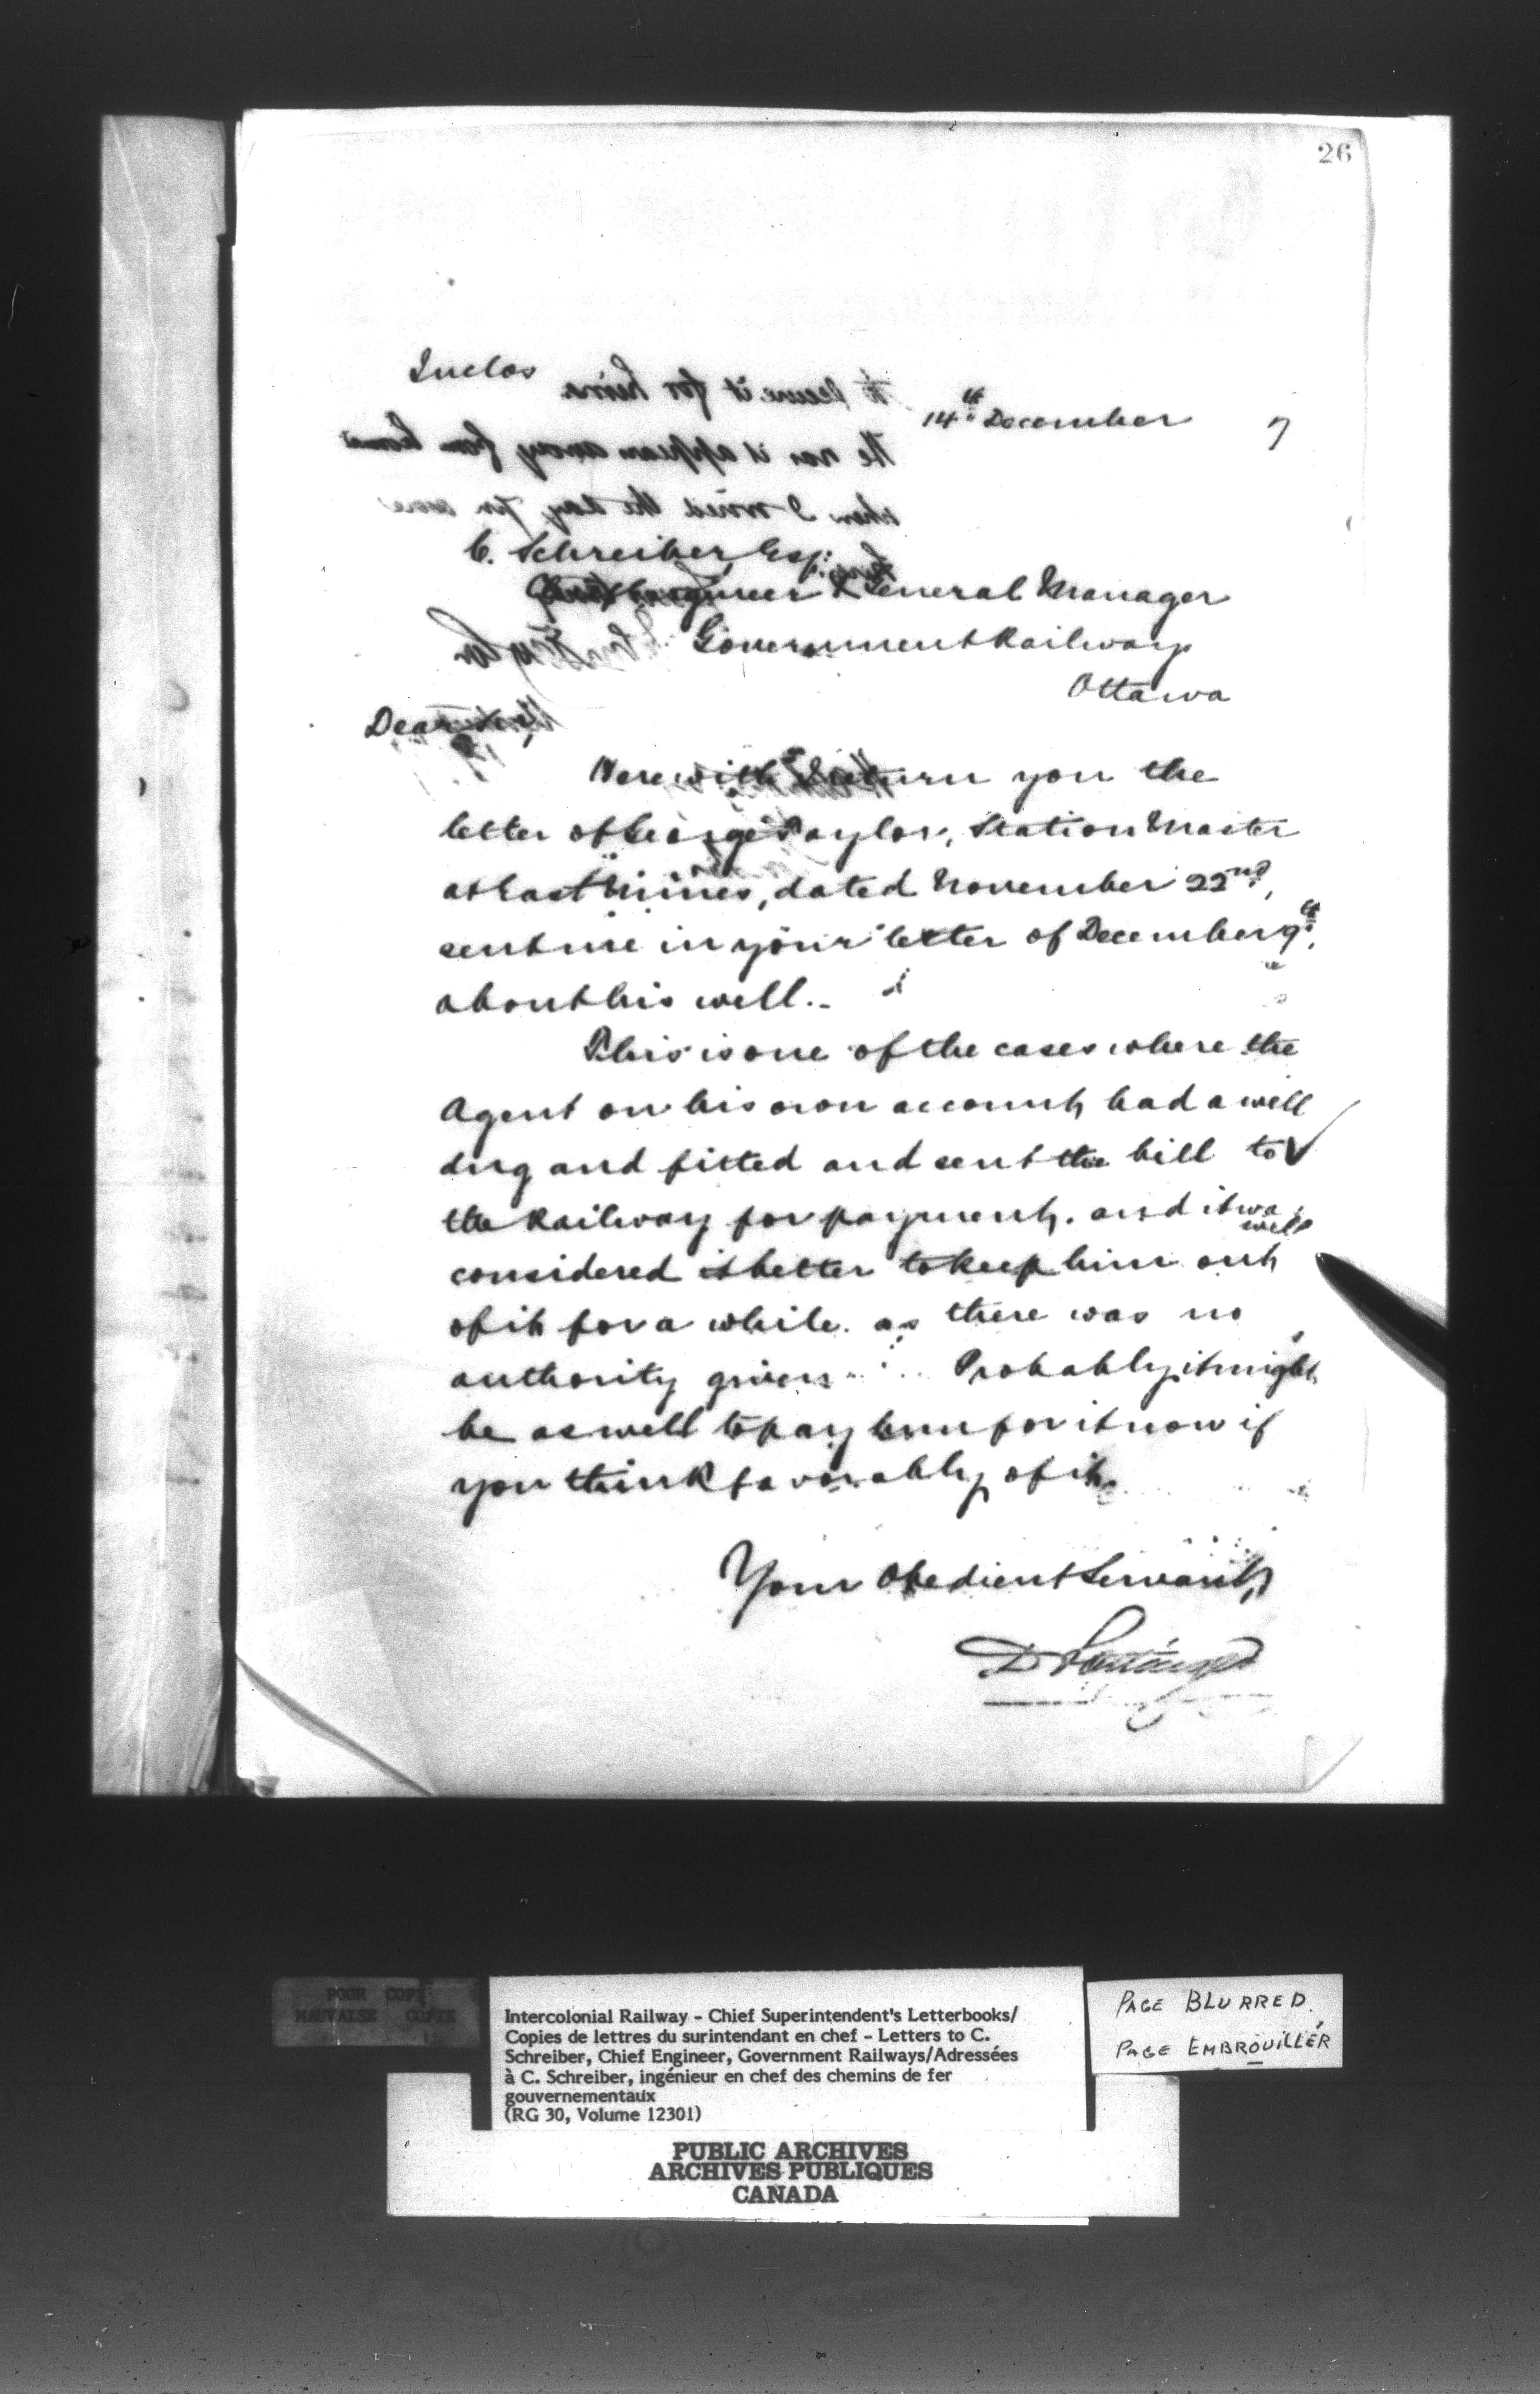 26
Inclos
14th December 7
C. Schreiber, Esq.
Chief Engineer & General Manager
Government Railways
Ottawa
Dear Sir,
Herewith I return you the
letter of George Taylor, Station Master
at East Mines, dated November 22nd,
sent me in your letter of December 9th,
about his well.
This is one of the cases where the
Agent on his own account, had a well
dug and fitted and sent the bill to
the Railway for payment. and it was
well
considered it better to keep him out
of it for a while. as there was no
authority given. Probably it might
be as well to pay him for it now if
you think favorably of it.
Your Obedient Servant,
D Pottinger
POOR COPY
MAUVAISE COPIE
Intercolonial Railway - Chief Superintendent's Letterbooks/
Copies de lettres du surintendant en chef - Letters to C.
Schreiber, Chief Engineer, Government Railways/Adressées
à C. Schreiber, ingénieur en chef des chemins de fer
gouvernementaux
(RG 30, Volume 12301)
PAGE BLURRED.
PAGE EMBROUILLÉR
PUBLIC ARCHIVES
ARCHIVES PUBLIQUES
CANADA